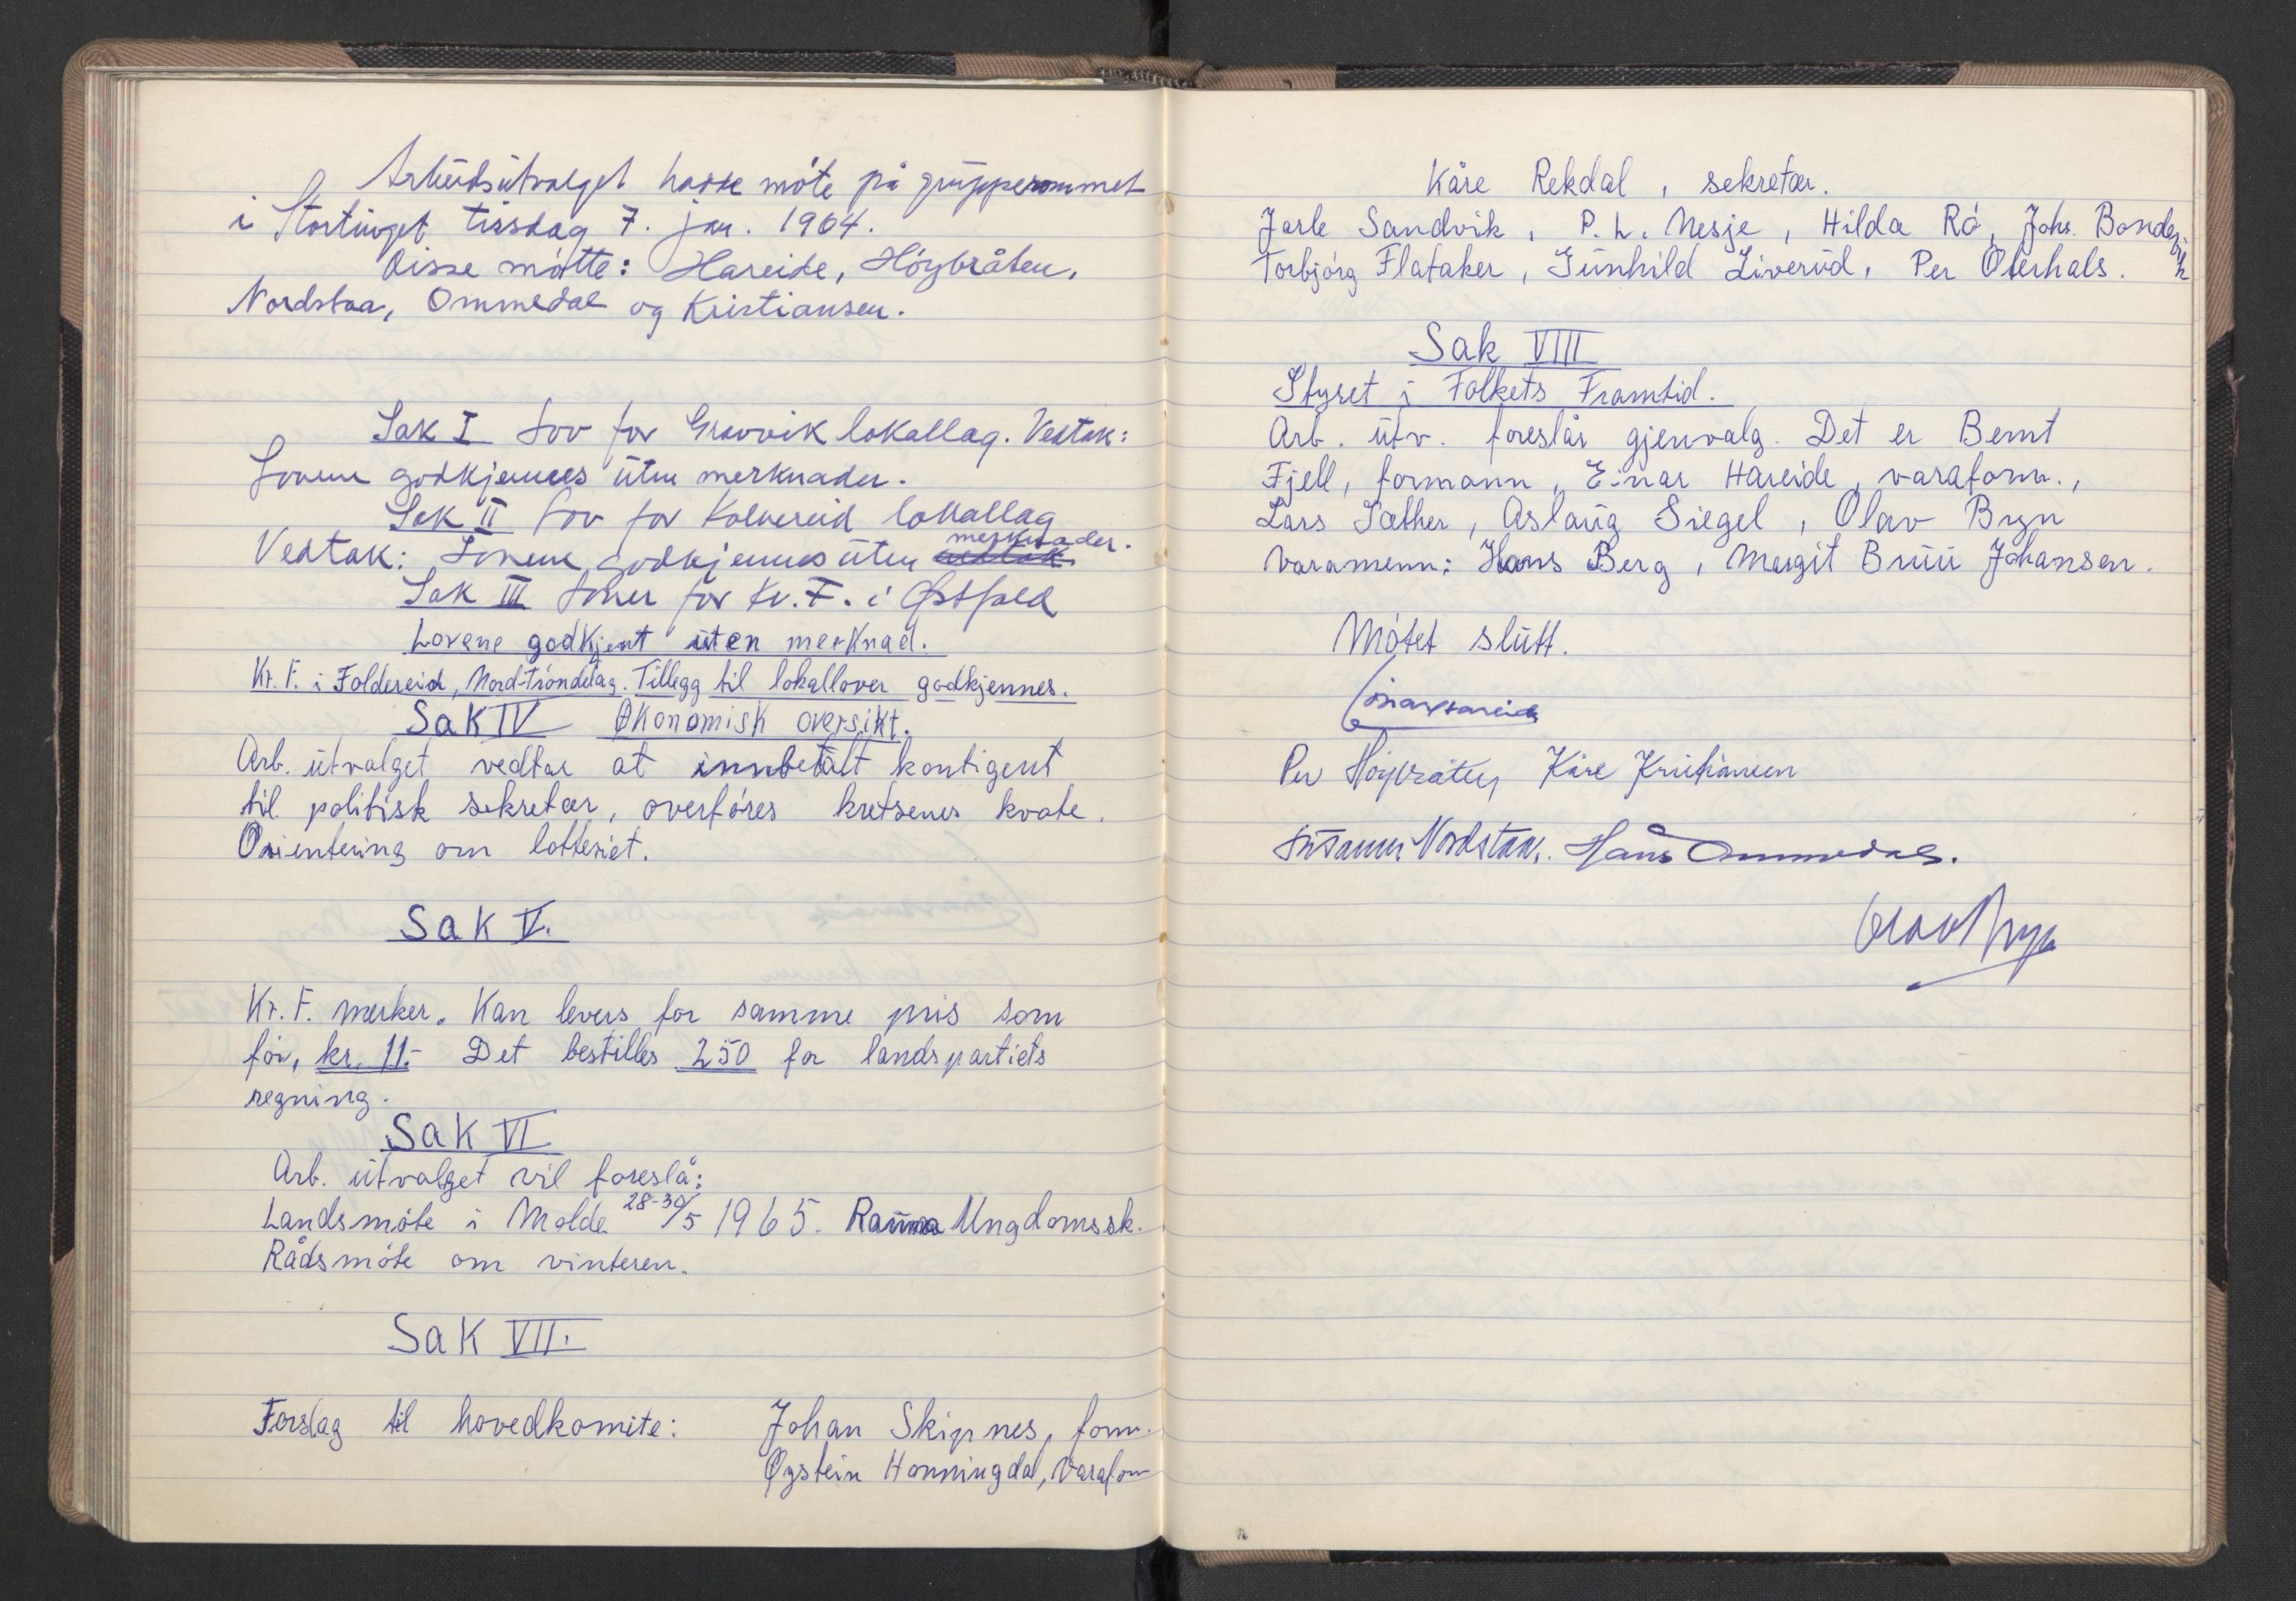 Arbeidsutvalget hadde møte på grupperommet
i Stortinget tirsdag 7. jan. 1964.
Disse møtte: Hareide, Høybråten,
Nordstaa, Ommedal og Kristiansen.
Sak I Lov for Gravvik lokallag. Vedtak:
Lovene godkjennes uten merknader.
Sak II Lov for Kolvereid lokallag
Vedtak: Lovene godkjennes uten vedtak merknader.
Sak III Lover for Kr. F. i Østfold
Lovene godkjent uten merknad.
Kr. F. i Foldereid, Nord-Trøndelag. Tillegg til lokallover godkjennes.
Sak IV Økonomisk oversikt.
Arb. utvalget vedtar at innbetalt kontigent
til politisk sekretær, overføres kretsenes kvote.
Orientering om lotteriet.
Sak V.
Kr. F. merker. Kan levers for samme pris som
før, kr. 11.- Det bestilles 250 for landspartiets
regning.
Sak VI
Arb. utvalget vil foreslå:
Landsmøte i Molde 28-30/5 1965. Rauma Ungdomssk.
Rådsmøte om vinteren.
Sak VII.
Forslag til hovedkomite: Johan Skipnes, form.
Øystein Honningdal, varaform
Kåre Rekdal, sekretær.
Jarle Sandvik, P. L. Nesje, Hilda Rø, Johs. Bondevik
Torbjørg Flataker, Gunhild Liverud, Per Oterhals.
Sak VIII
Styret i Folkets Framtid.
Arb. utv. foreslår gjenvalg. Det er Bernt
Fjell, formann, Einar Hareide, varaform.,
Lars Sæther, Aslaug Siegel, Olav Bryn
varamenn: Hans Berg, Margit Bruu Johansen.
Møtet slutt.
Einar Hareide
Per Høybråten Kåre Kristiansen
Susanne Nordstaa. Hans Ommedal.
Olav Bryn